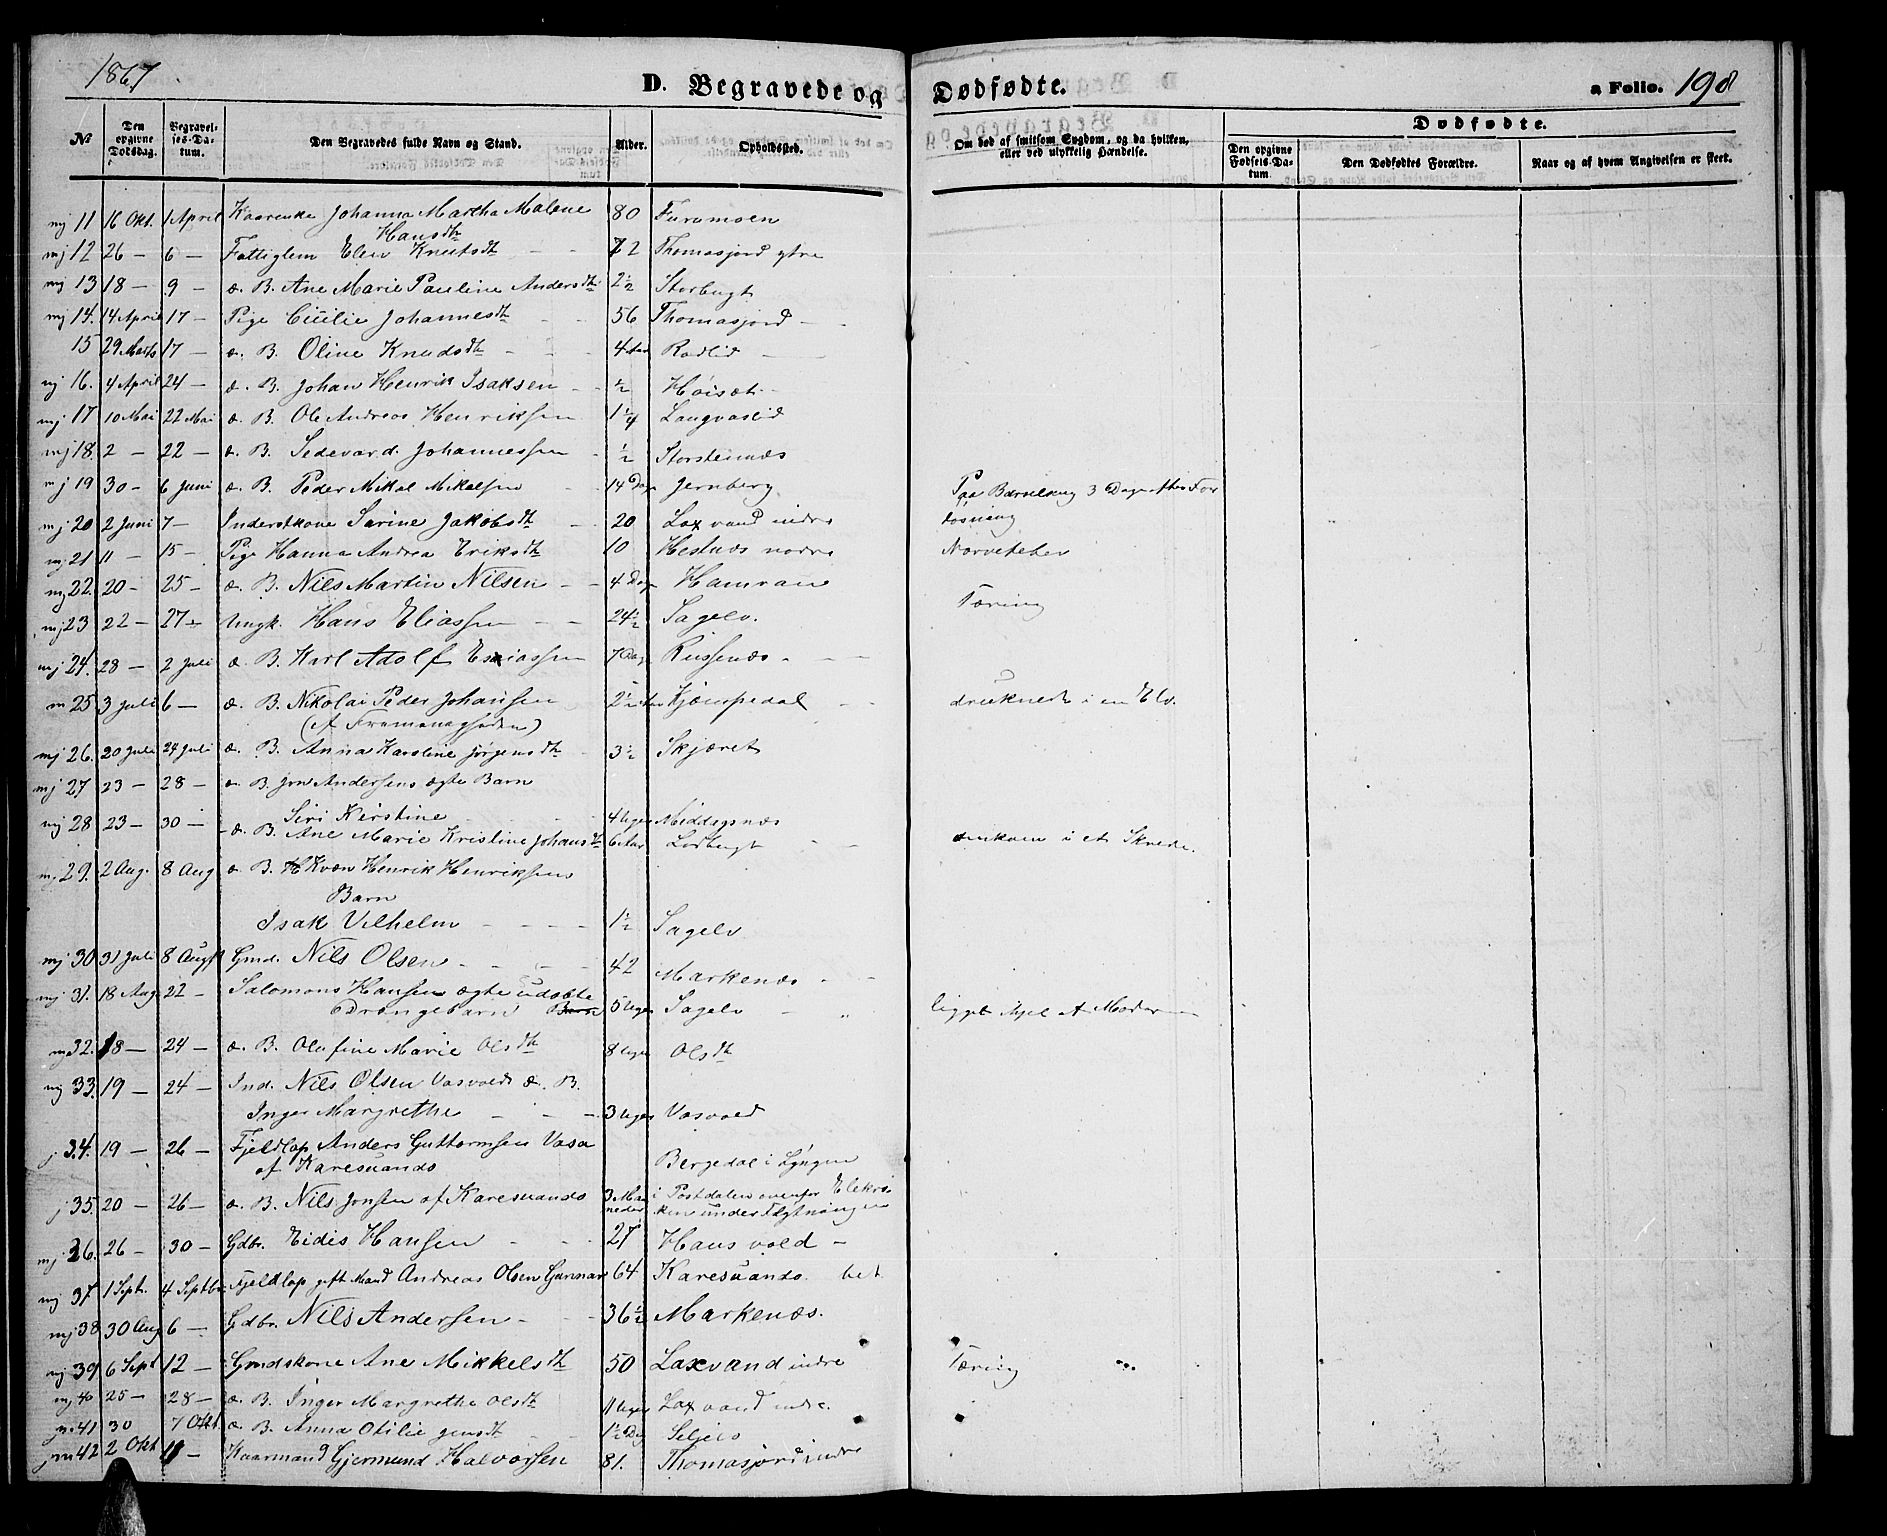 1867
D. Begravede og Dødfødte.
a Folio. 198
№ Den opgivne Dødsdag. Begravelses-Datum. Den Begravedes fulde Navn og Stand. Alder. Opholdssted. Om død af smitsom Sygdom, og da hvilken, eller ved ulykkelig Hændelse. Dødfødte.
Den opgivne Fødsels-Datum. Den Dødfødtes Forældre. Naar og af hvem Angivelsen er skeet.
11 16 Okt. 1 April Kaarenke Johanna Martha Malene Hansdtr 80 Furomoen
12 26 — 6 — Fattiglem Elen Knutsdtr 72 Thomasjord ytre
13 18 — 9 — æ. B. Ane Marie Pauline Andersdtr 2½ Storbugt
14. 14 April 17 — Pige Cicilie Johannesdtr 56 Thomasjord
15 29 Marts 17 — æ. B. Oline Knudsdtr 4 Aar Rodlid
16. 4 April 24 — æ. B. Johan Henrik Isaksen ½ Høisæt
17 10 Mai 22 Mai æ. B. Ole Andreas Henriksen 1¼ Langvaslid
18. 2 — 22 — æ. B. Sedevard Johannessen ½ Storsteinæs
19 30 — 6 Juni æ. B. Peder Mikal Mikalsen 14 Dage Jernberg Paa Barselseng 3 Dage efter For
20 2 Juni 7 — Inderstkone Sarine Jakobsdtr 20 Laxvand indre løsning
21 11 — 15 — Pige Hanna Andrea Eriksdtr 10 Hestnæs nordre Nervefeber
22. 20 — 25 — æ. B. Nils Martin Nilsen 4 Dage Hamran
23 22 — 27 — Ungk. Hans Eliassen 24½ Sagelv. Tæring
24. 28 — 2 Juli æ. B. Karl Adolf Esaiassen 7 Dage Russenæs
25 3 Juli 6 — æ. B. Nikolai Peder Johansen 2½ Aar Kjøuspedal druknede i en Elv.
26. 20 Juli 24 Juli æ. B. Anna Karoline Jørgensdtr 3½ Skjæret
27 23 — 28 — æ. B. Jon Andersens ægte Barn
Siri Kirstine 4 Uger Middagsnæs
28 23 — 30 — æ. B. Ane Marie Kristine Johansdtr 6 Aar Lodbugt omkom i et Skrede.
29. 2 Aug. 8 Aug æ. B. Kvæn Henrik Henriksens
Barn
Isak Vilhelm 1½ Sagelv
30 31 Juli 8 August Gmd. Nils Olsen 42 Markenæs
31. 18 Aug 22 — Salomons Hansen ægte udøbte
Drengebarn 5 Uger Sagelv ligget ihjel af Moderen
32. 18 — 24 — æ. B. Olufine Marie Olsdtr 8 Uger Olsdtr
33. 19 — 24 — Ind. Nils Olsen Vasvolds æ. B.
Inger Margrethe 3 Uger Vasvold
34. 19 — 26 — Fjeldlap Anders Guttormsen Vasa
af Karesuando Bergedal i Lyngen
35. 20 — 26 — æ. B. Nils Jonsen af Karesuando 3 Maaneder i Postdalen ovenfor
under Flytningen
36. 26 — 30 — Gdbr. Eidis Hansen 27 Hansvold
37 1 Sept. 4 Septbr. Fjeldlap gift Mand Andreas Olsen Gunnar 64 Karesuando
38 30 Aug 6 — Gdbr. Nils Andersen 36½ Markenæs.
39 6 Sept 12 — Gmdskone Ane Mikkelsdtr 50 Laxvand indre Tæring
40 25 — 28 — æ. B. Inger Margrethe Olsdtr 11 Uger Laxvand indre
41 30 7 Okt æ. B. Anna Otilie Jensdtr 1½ Dag Seljeis
42 2 Okt 11 — Kaarmand Gjermund Halvorsen 81. Thomasjord indre